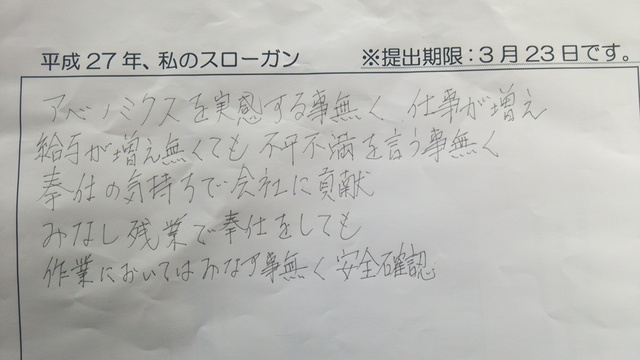 平成27年、私のスローガン ※提出期限:3月23日です。
アベノミクスを実感する事無く 仕事が増え
給与が増え無くても 不平不満を言う事無く
奉仕の気持ちで会社に貢献
みなし残業で奉仕をしても
作業においてはみなす事無く安全確認